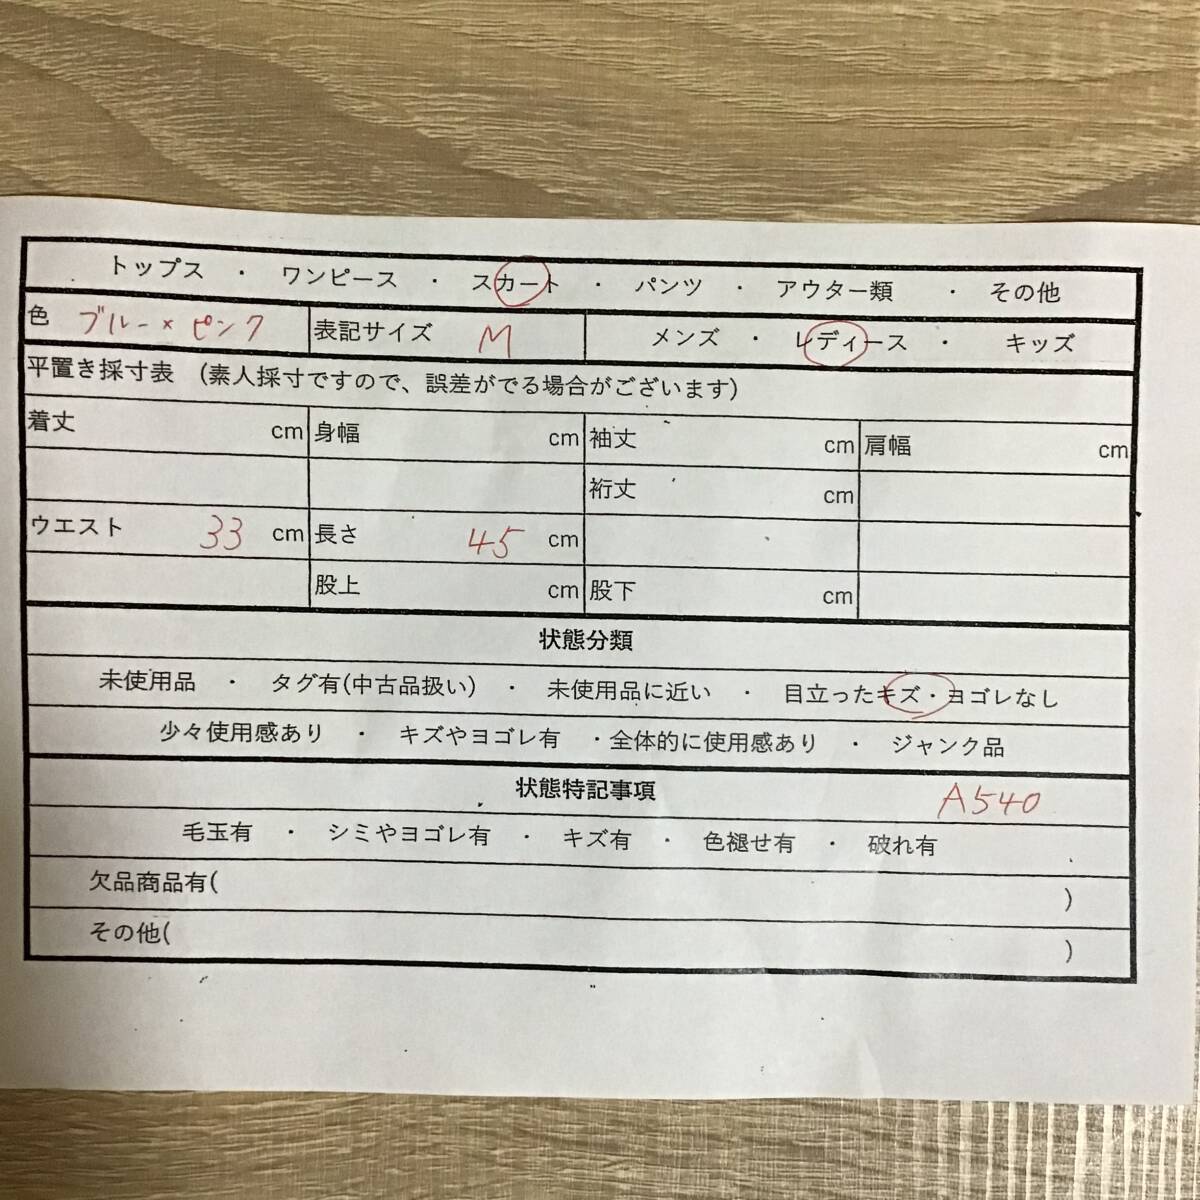 トップス ・ ワンピース ・ スカート ・ パンツ ・ アウター類 ・ その他
色 ブルー×ピンク 表記サイズ M メンズ ・ レディース ・ キッズ
平置き採寸表 (素人採寸ですので、誤差がでる場合がございます)
着丈 cm 身幅 cm 袖丈 cm 肩幅 cm
裄丈 cm
ウエスト 33 cm 長さ 45 cm
股上 cm 股下 cm
状態分類
未使用品 ・ タグ有(中古品扱い) ・ 未使用品に近い ・ 目立ったキズ・ヨゴレなし
少々使用感あり ・ キズやヨゴレ有 ・全体的に使用感あり ・ ジャンク品
状態特記事項 A540
毛玉有 ・ シミやヨゴレ有 ・ キズ有 ・ 色褪せ有 ・ 破れ有
欠品商品有( )
その他( )